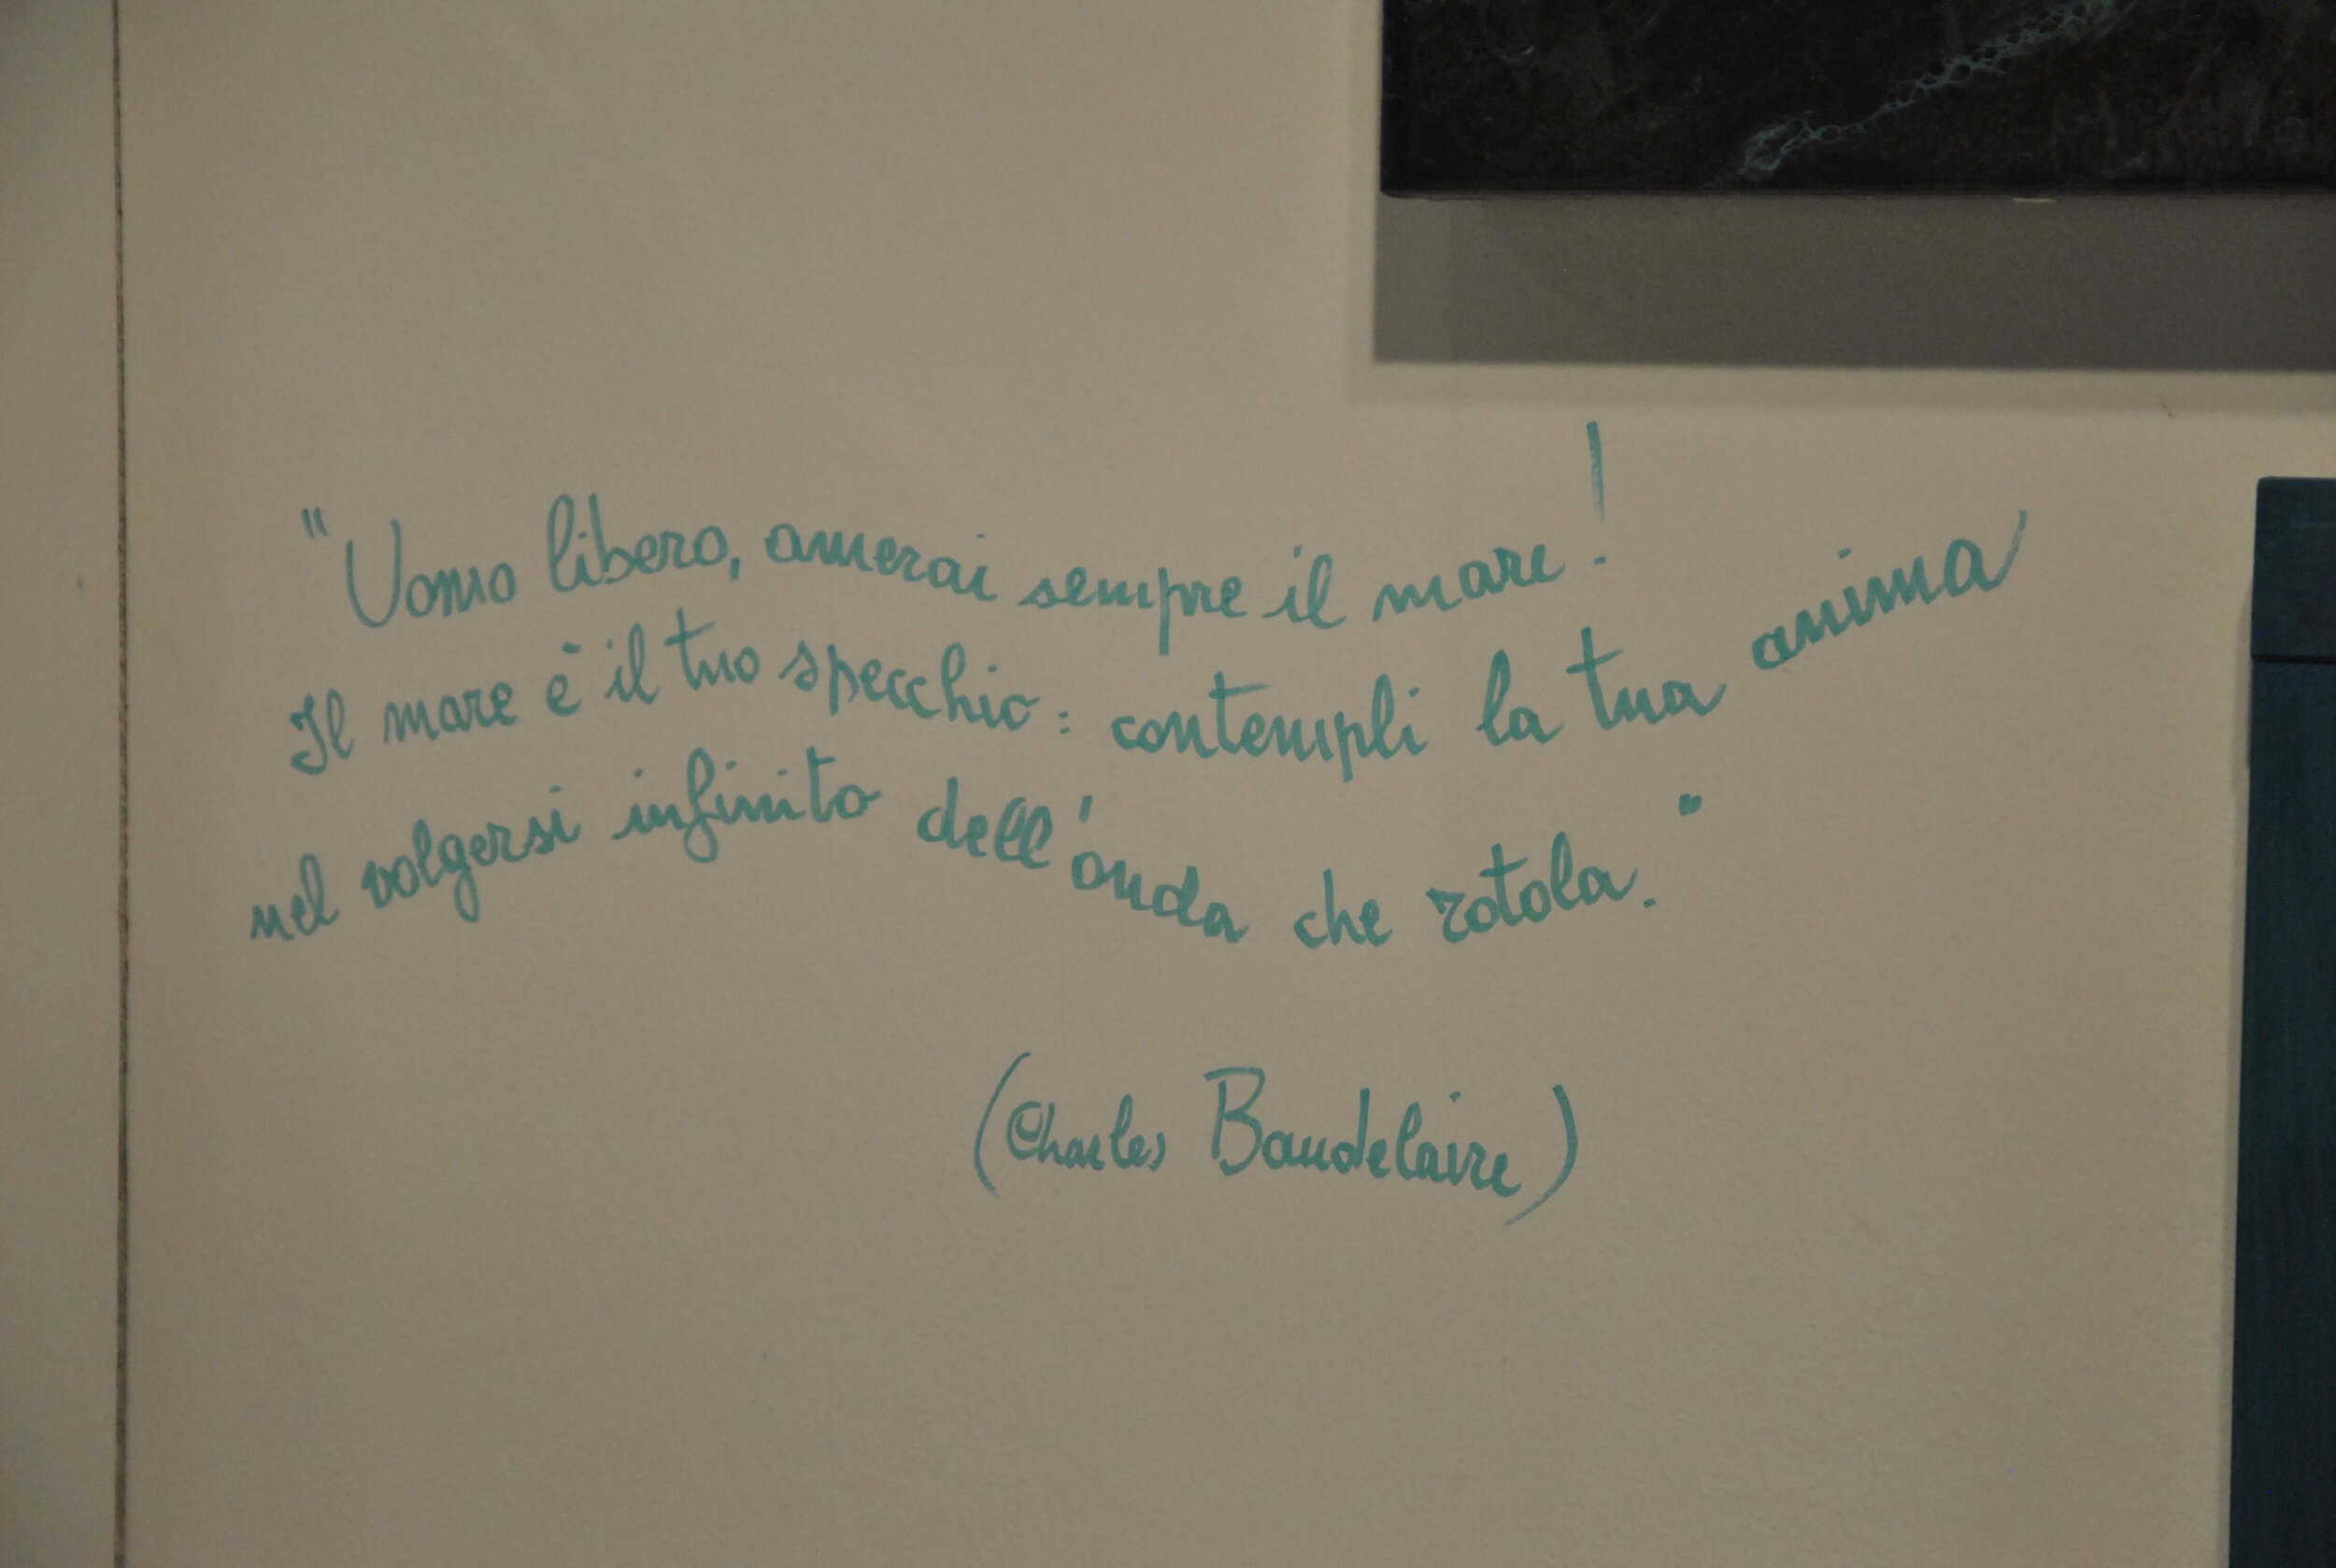 "Uomo libero, amerai sempre il mare!
Il mare è il tuo specchio: contempli la tua anima
nel volgersi infinito dell'onda che rotola."
(Charles Baudelaire)